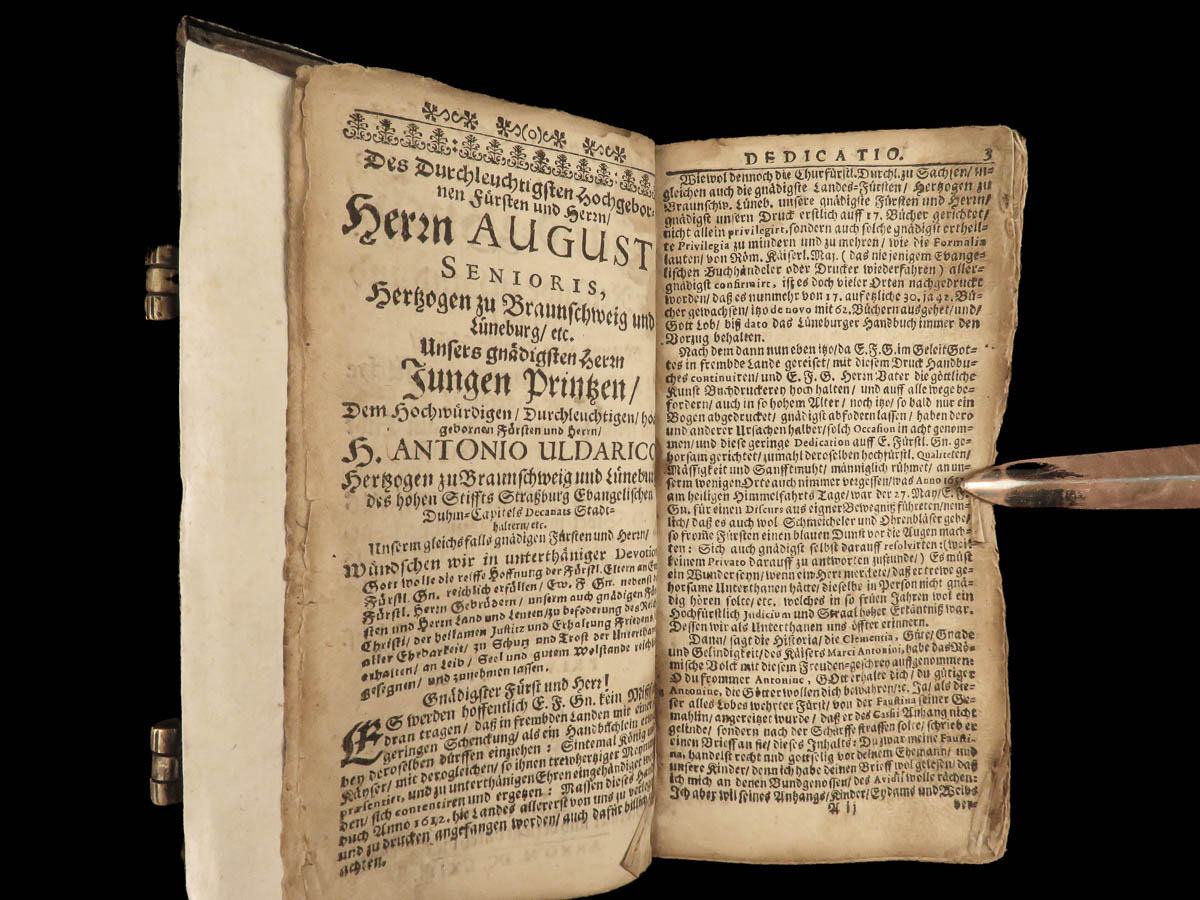 Des Durchleuchtigsten Hochgebor-
nen Fürsten und Herrn/
Herrn AUGUST
SENIORIS,
Hertzogen zu Braunschweig und
Lüneburg/ etc.
Unsers gnädigsten Herrn
Jungen Printzen/
Dem Hochwürdigen/ Durchleuchtigen/
gebornen Fürsten und Herrn/
H. ANTONIO ULDARICO
Hertzogen zu Braunschweig und Lüneburg
des hohen Stiffts Straßburg Evangelischen
Duhm-Capitels Decanats Stadt-
haltern/ etc.
Unserm gleichsfalls gnädigen Fürsten und Herrn/
Wündschen wir in unterthäniger Devotion
Gott wolle die reiffe Hoffnung der Fürstl. Eltern an
Fürstl. Gn. reichlich erfüllen/ Ew. F. Gn. nebenst
Fürstl. Herrn Gebrüdern/ unserm auch gnädigen
sten und Herrn Land und Leuten/ zu befoderung des
Christi/ der heilamen Justitz und Erhaltung Friedens
aller Ehrbarkeit/ zu Schutz und Trost der
erhalten/ an Leib/ Seel und gutem Wolstande
gesegnen/ und zunehmen lassen.
Gnädigster Fürst und Herr!
ES werden hoffentlich E. F. Gn. kein
dran tragen/ daß in frembden Landen mit einer
geringen Schenckung/ als ein Handbüchlein
bey deroselben dürffen einziehen: Sintemal König
Käyser/ mit derogleichen/ so ihnen trewhertziger Meynung
præsentiret, und zu unterthänigen Ehren eingehändiget
den/ sich contentiren und ergetzen: Massen dieses
buch Anno 1612. hie Landes allererst von uns zu
und zu drucken angefangen worden/ auch dafür billich
achten.
DEDICATIO. 3
Wiewol dennoch die Churfürstl. Durchl. zu Sachsen/ in-
gleichen auch die gnädigste Landes-Fürsten/ Hertzogen zu
Braunschw. Lüneb. unsere gnädigste Fürsten und Herrn/
gnädigst unsern Druck erstlich auff 17. Bücher gerichtet/
nicht allein privilegirt, sondern auch solche gnädigst ertheil-
te Privilegia zu mindern und zu mehren/ wie die Formalia
lauten/ von Röm. Käiserl. Maj. (das nie jenigem Evange-
lischen Buchhändeler oder Drucker wiederfahren) aller-
gnädigst confirmirt, ist es doch vieler Orten nachgedruckt
worden/ daß es nunmehr von 17. auf etzliche 30. ja 42. Bü-
cher gewachsen/ itzo de novo mit 62. Büchern ausgehet/ und/
Gott Lob/ biß dato das Lüneburger Handbuch immer den
Vorzug behalten.
Nach dem dann nun eben itzo/ da E. F. G. im Geleit Got-
tes in frembde Lande gereiset/ mit diesem Druck Handbu-
ches continuiren/ und E. F. G. Herr Vater die göttliche
Kunst Buchdruckerey hoch halten/ und auff alle wege be-
fordern/ auch in so hohem Alter/ noch itzo/ so bald nur ein
Bogen abgedrucket/ gnädigst abfodern lassen/ haben dero
und anderer Ursachen halber/ solch Occasion in acht genom-
men/ und diese geringe Dedication auff E. Fürstl. Gn. ge-
horsam gerichtet/ zumahl deroselben hochfürstl. Qualiteten/
Mässigkeit und Sanfftmuht/ männiglich rühmet/ an un-
serm wenigen Orte auch nimmer vergessen/ was Anno
am heiligen Himmelfahrts Tage/ war der 27. May/ E. F.
Gn. für einen Discurs aus eigner Bewegniß führeten/ nem-
lich/ daß es auch wol Schmeicheler und Ohrenbläser gebe/
so frome Fürsten einen blauen Dunst vor die Augen mach-
ten: Sich auch gnädigst selbst darauff resolvirten: (weil
keinem Privato darauff zu antworten zustunde/) Es müst
ein Wunder seyn/ wenn ein Herr merckete/ daß er trewe ge-
horsame Unterthanen hätte/ dieselbe in Person nicht gnä-
dig hören solte/ etc. welches in so früen Jahren wol ein
Hochfürstlich Judicium und Straal hoher Erkäntniß war.
Dessen wir als Unterthanen uns öffter erinnern.
Dann/ sagt die Historia/ die Clementia, Güte/ Gnade
und Gelindigkeit/ des Käisers Marci Antonini, habe das Rö-
mische Volck mit diesem Freuden-geschrey auffgenommen:
O du frommer Antonine, GOtt erhalte dich/ du gütiger
Antonine, die Götter wollen dich bewahren/ ꝛc. Ja/ als die-
ser alles Lobes wehrter Fürst/ von der Faustina seiner Ge-
mahlin/ angereitzet wurde/ daß er des Cassii Anhang nicht
gelinde/ sondern nach der Schärffe straffen solte/ schrieb er
einen Brieff an sie/ dieses Inhalts: Du zwar meine Fausti-
na, handelst recht und gottselig vor deinem Ehemann/ und
unsere Kinder/ denn ich habe deinen Brieff wol gelesen/ daß
ich mich an denen Bundgenossen/ des Avidii wolle rächen:
Ich aber wil seines Anhangs/ Kinder/ Eydams und Weibs
A ij ver-